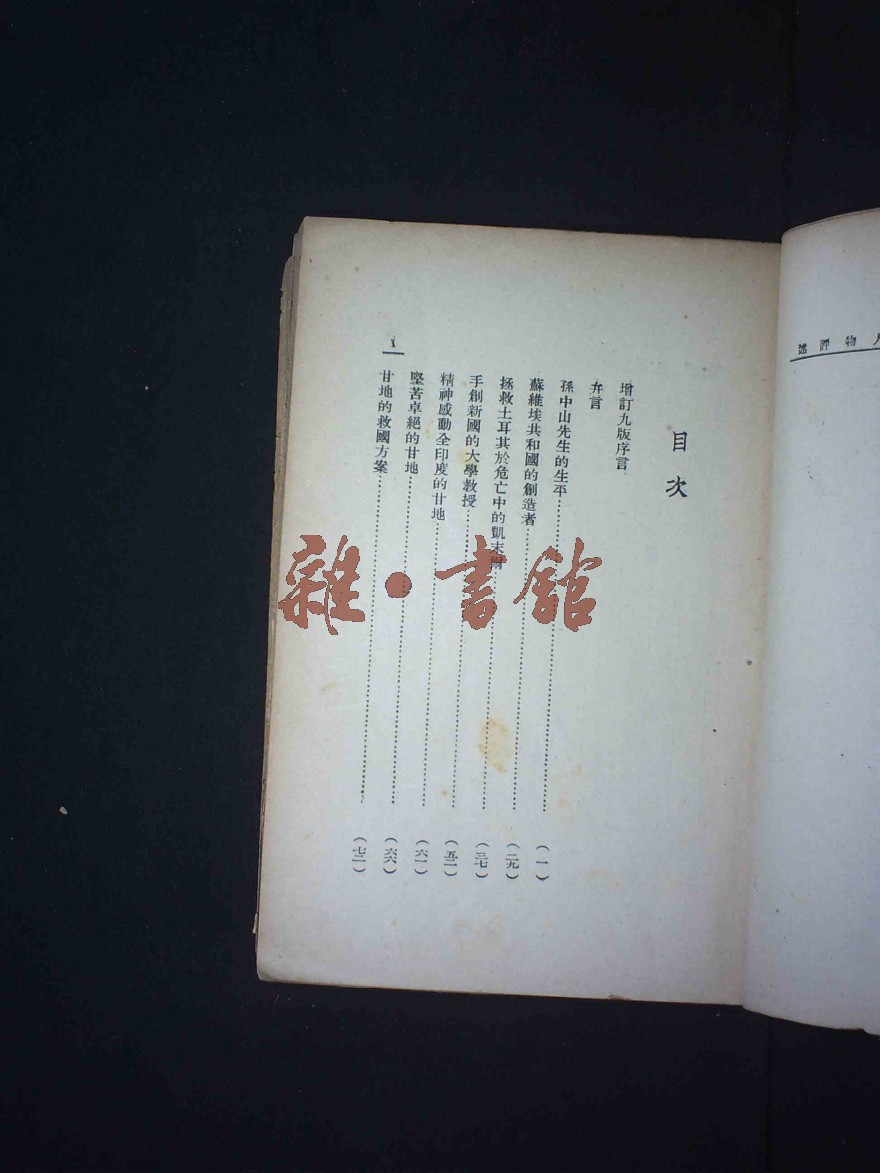 人物評述
目次
增訂九版序言
弁言
孫中山先生的生平……(一)
蘇維埃共和國的創造者……(二九)
拯救土耳其於危亡中的凱末爾……(三七)
手創新國的大學教授……(五二)
精神感動全印度的甘地……(六一)
堅苦卓絕的甘地……(六六)
甘地的救國方案……(七二)
1
雜·書館